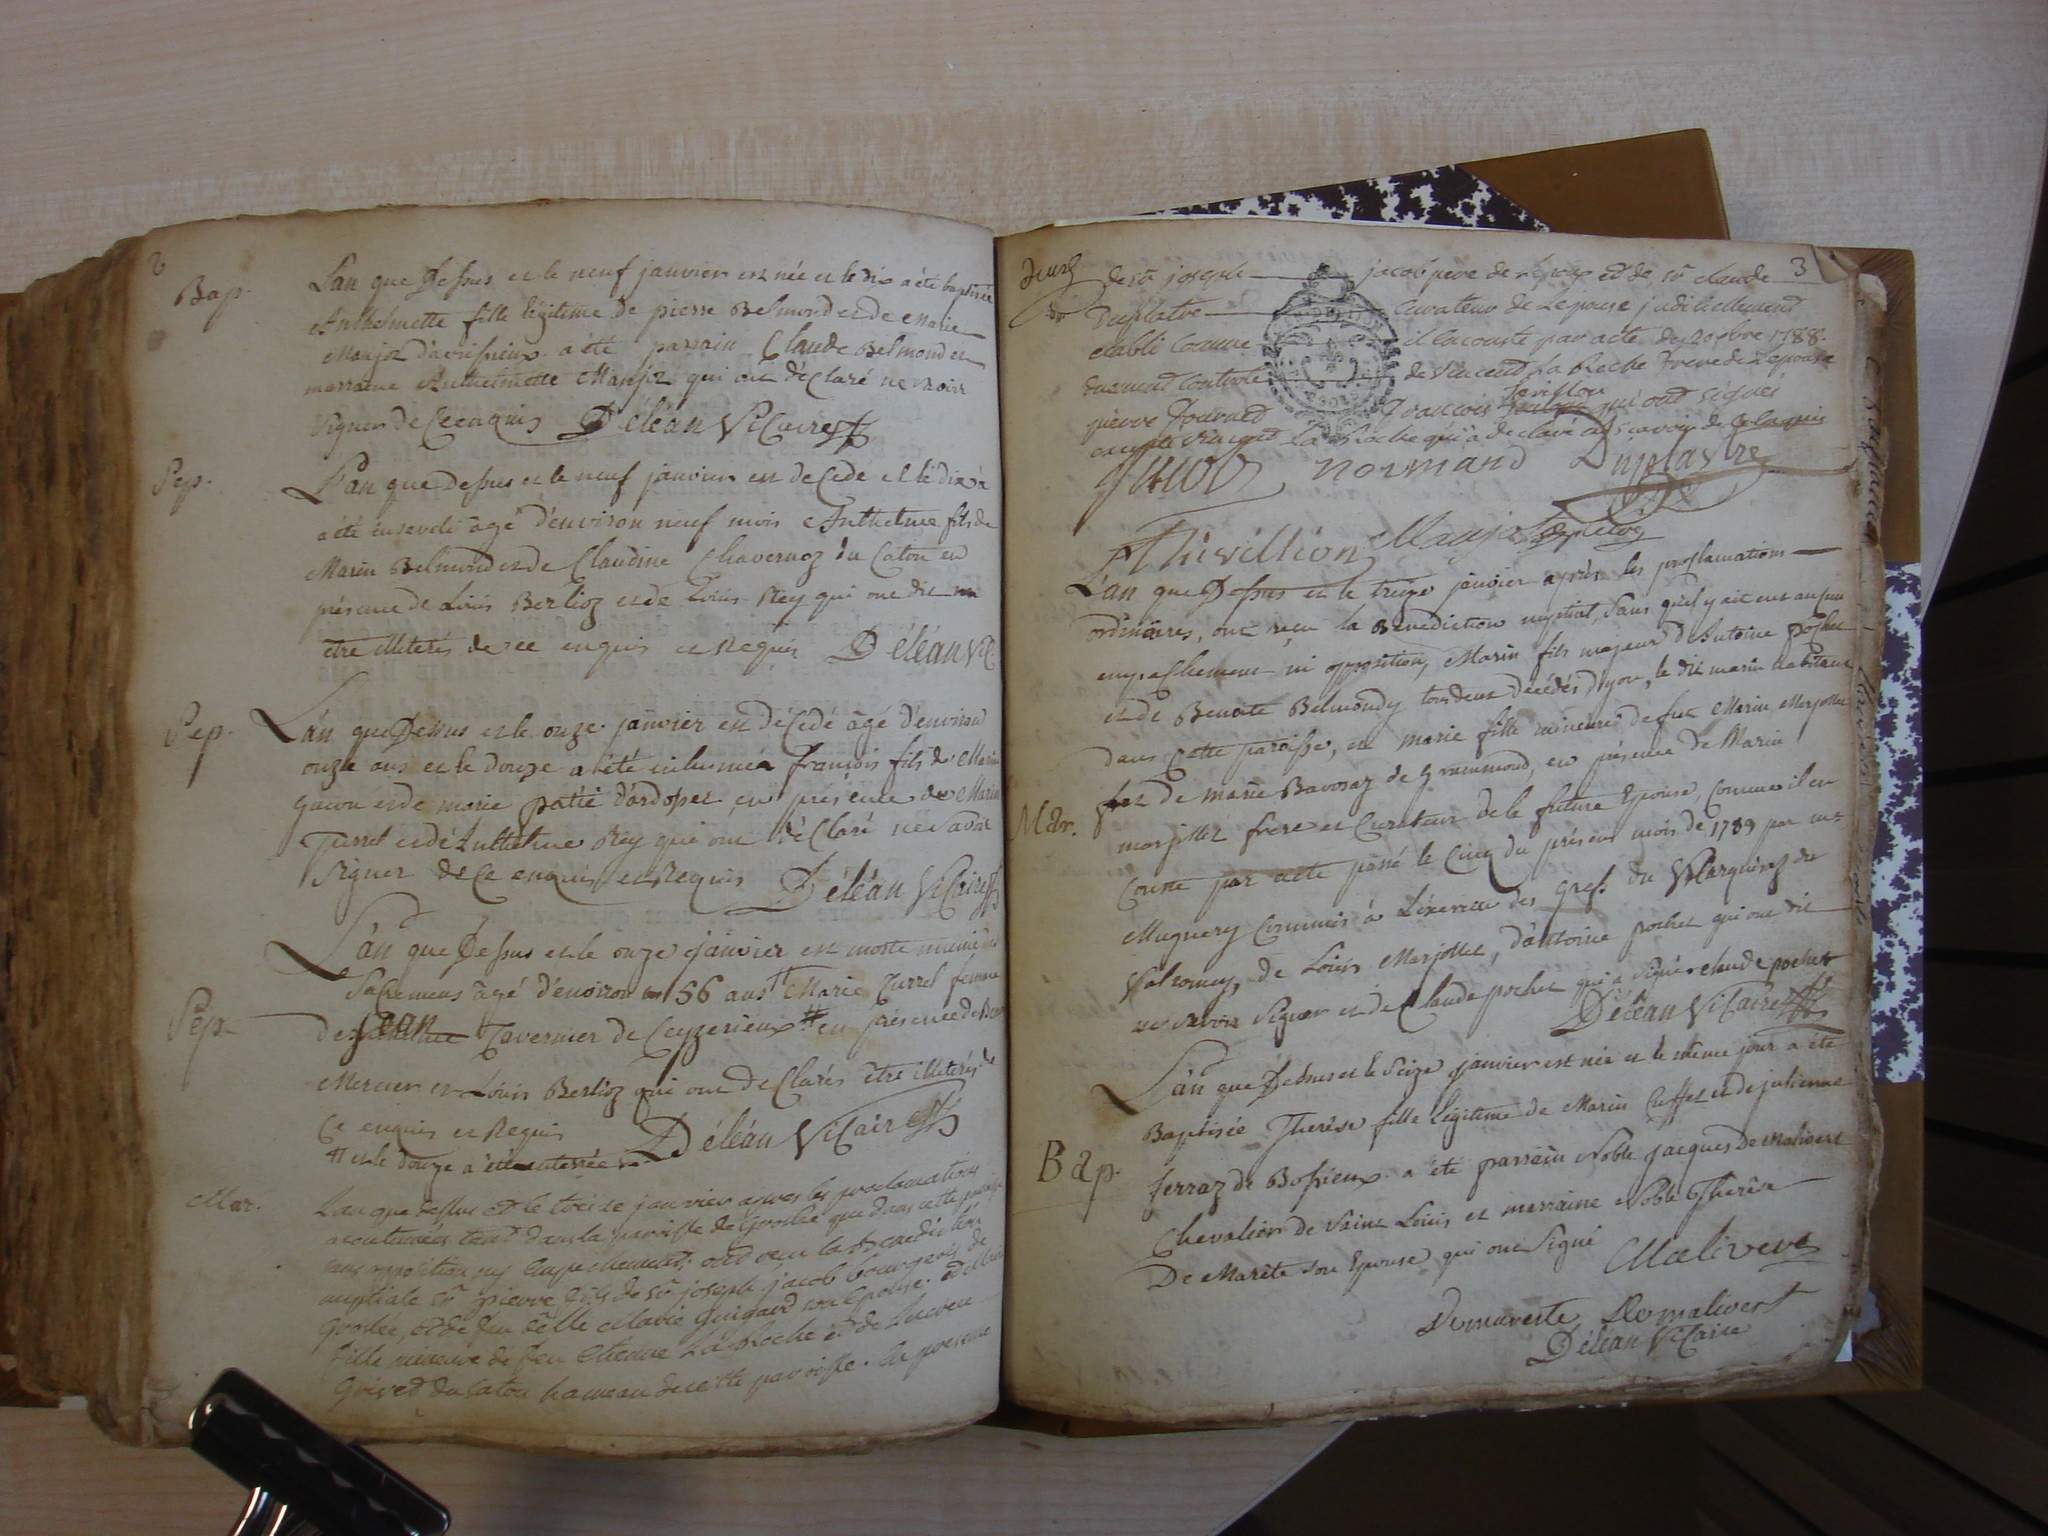 Bap.
L'an que Dessus et le neuf janvier est née et le dix a été baptisée
Anthelmette fille légitime de pierre Belmond et de Marie
Manjot d'avrissieux. a été parrain Claude Belmond et
marraine Anthelmette Manjot qui ont déClaré ne savoir
signer de Ce enquis Déléan ViCaire
Sep.
L'an que Dessus et le neuf janvier est deCede et le dix
a été enseveli âgé d'environ neuf mois Anthelme fils de
Marin Belmond et de Claudine Chavernoz du Caton en
présence de Loüis Berlioz et de Loüis Rey qui ont dit
etre illiterés de ce enquis et Requis Déléan ViC
Sep.
L'an que Dessus et le onze janvier est déCedé âgé d'environ
onze ans et le douze a été inhumé françois fils de Marin
Gacon et de marie patié d'ardosset en présence de Marin
Turrel et de Anthelme Rey qui ont déClaré ne savoir
signer de Ce enquis et Requis Déléan ViCaire
Sep.
L'an que Dessus et le onze janvier est morte munie des
Sacremens âgé d'environ 56 ans Marie Turrel femme
de jean Tavernier de Ceyzerieux # en présence de
Mercier et Loüis Berlioz qui ont deClarés être illiterés de
Ce enquis et Requis Déléan ViCaire
# et le douze a été enterrée
Mar.
L'an que dessus et le treize janvier apres les proclamations
acoutumées tant dans la paroisse de Groslée que dans cette paroisse
sans opposition ny empechement, ont recu la benediction
nuptiale sr pierre fils de sr joseph jacob bourgeois de
Groslée, et de feu delle Marie Guigard son Epouse. et
fille mineure de feu Etienne La Roche et de
Grivet du Caton hameau de cette paroisse. En presence
3
de sr joseph jacob pere de l'epoux et de sr claude
Duplatre Curateur de L'epouse judiciellement
etabli Comme il Conste par acte du 20 xbre 1788.
duement Controle de Vincent La Roche frere de L'epouse
pierre françois Thivillion qui ont signés
Vincent La Roche qui a declaré ne scavoir de Ce enquis
jacob normand Duplastre
Thivillion Manjot
Mar.
L'an que Dessus et le treize janvier après les proclamations
ordinaires, ont reçu la Benédiction nuptial, sans qu'il y ait eut aucune
empeChement ni opposition, Marin fils majeur d'Antoine pochet
et de Benoite Belmondy tous deux décédés d'yon, le dit marin habitant
dans Cette paroisse, et marie fille mineure de fut Marin Merjollet
et de marie Bavoraz de Grammond, en présence de Marin
morjollet frere et Curateur de la future Epouse, Comme il en
Conste par acte passé le Cinq du présent mois de 1789 par me
Mugnery Commis à L'éxercice des Gref. du Marquisaz du
Valromey, de Loüis Merjollet, d'antoine pochet qui ont dit
ne savoir signer et de Claude pochet qui a signé claude pochet
Déléan ViCaire
Bap.
L'an que Dessus et le Seize janvier est née et le même jour a été
Baptisée Therèse fille légitime de Marin Cuffet et de julienne
ferraz de Bossieux. a été parrain Noble jacques De malivert
Chevalier de Saint Loüis et marraine Noble Therèse
De Marète son Epouse qui ont signé Malivert
Demareste Demalivert
Déléan ViCaire